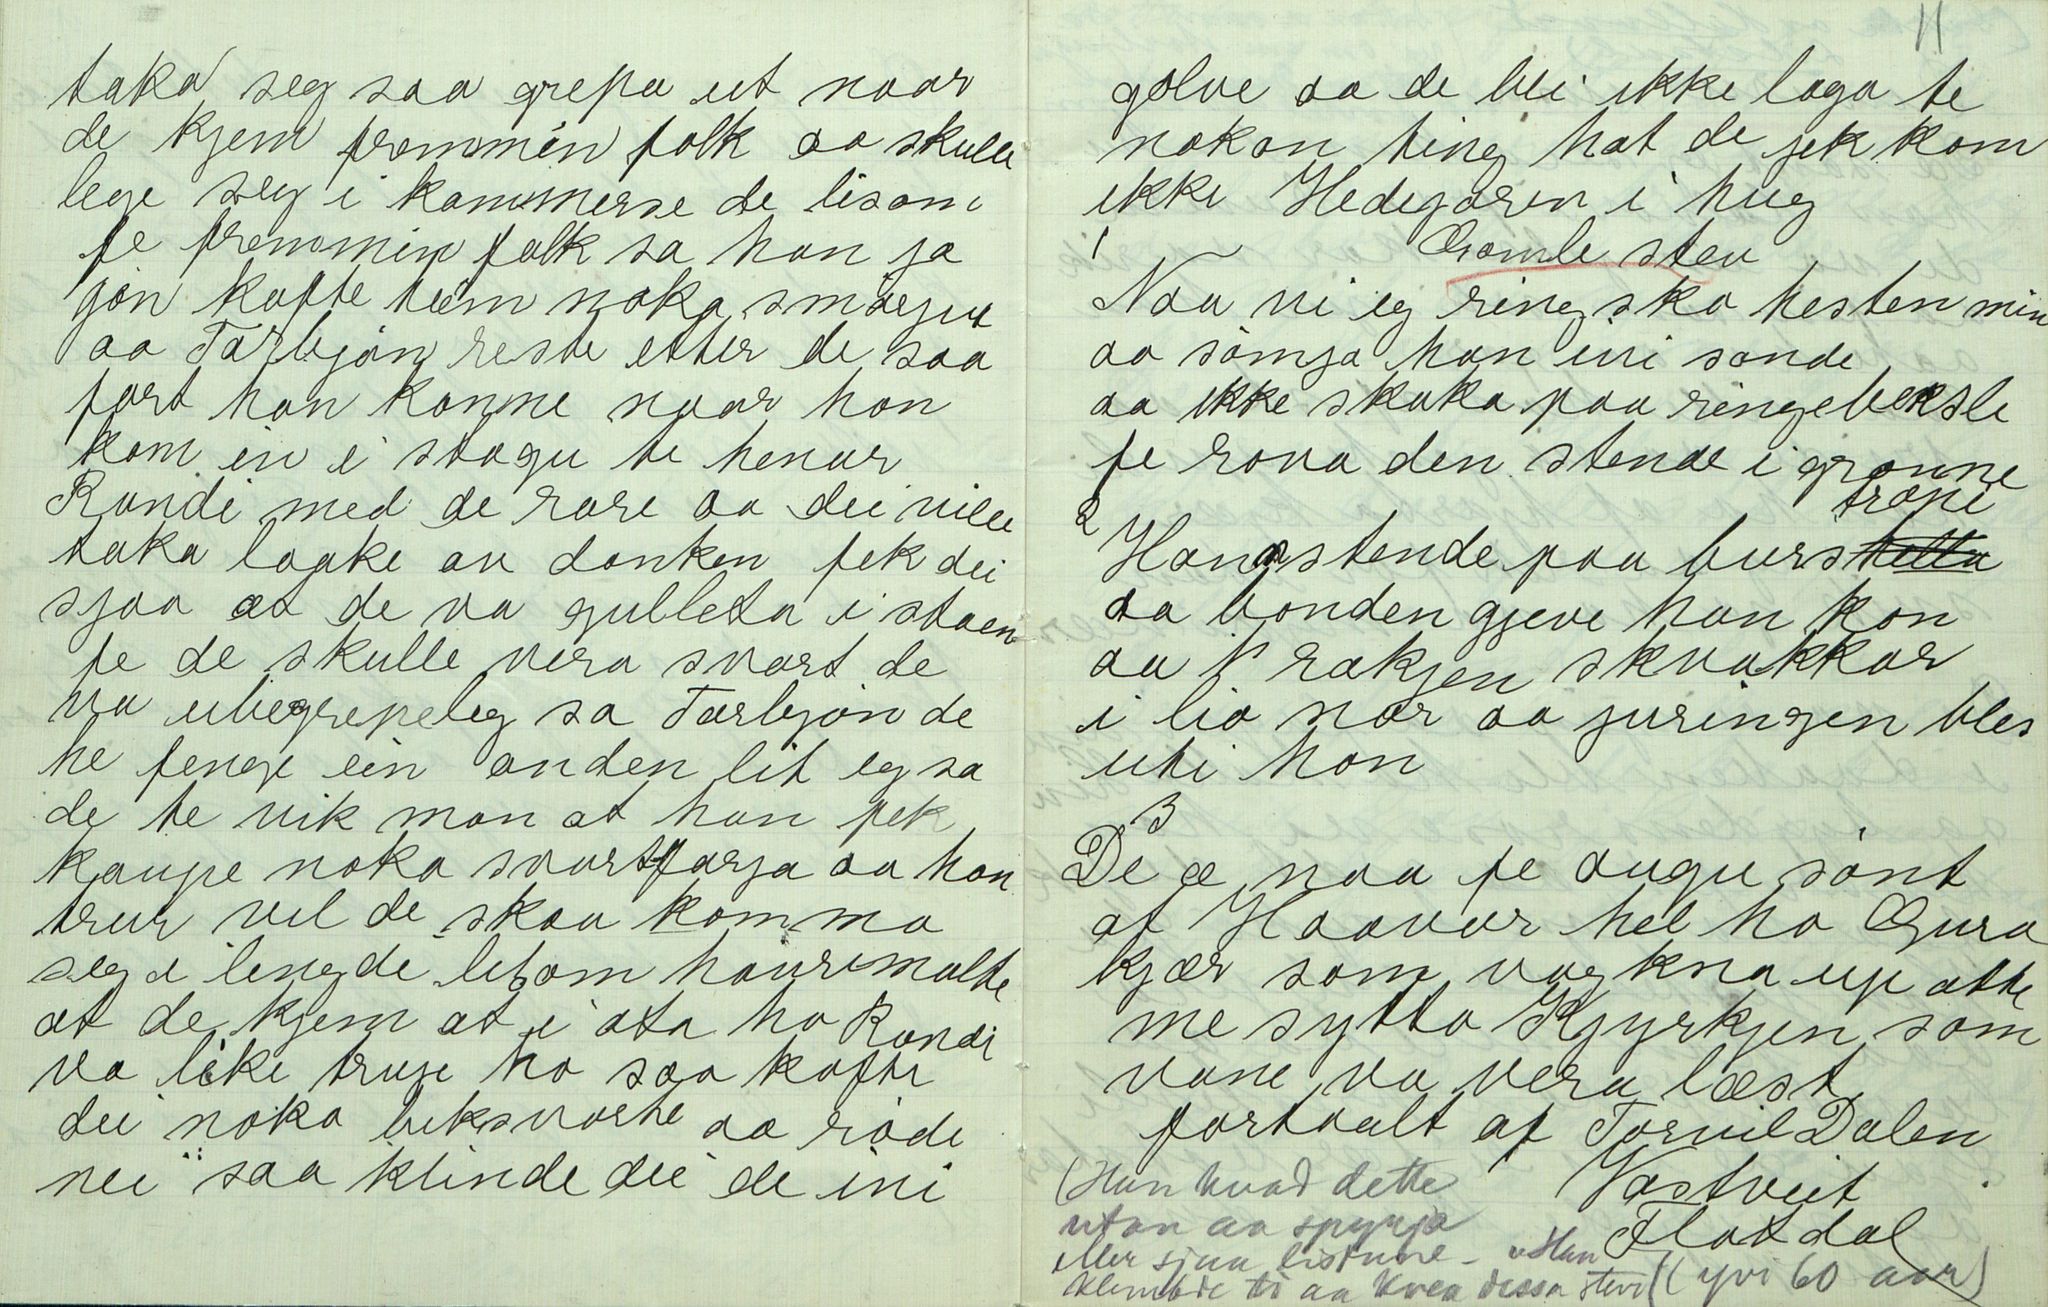 taka seg saa grepa ut naar
de kjem fremmen folk aa skulle
lege seg i kammerse de lisom
fe fremmin folk sa han ja
jøn kafte heim noka smøgut
aa Tarbjøn reste etter de saa
fort han konne naar han
kom in i stagu te henar
Randi med de rare aa dei ville
taka laake av danken fek dei
sjaa at de va gulleta i staen
fe de skulle vera svart de
va ubegrepeleg sa Tarbjøn de
he fenge ein anden lit eg sa
de te vik man at han fek
kaupe noka svartfarga aa han
trur vel de skaa komma
seg i lengde lisom haurimalte
at de kjem at i ata ho Randi
va like trug ho saa kafte
dei noka beksvarte aa røde
nei saa klinde dei de ini
11
golve aa de blei ikke laga te
nokon ting hat de fek kom
ikke Hedegaren i hug
Gamle stev
1
Naa vi eg ring sko hesten min
aa sømja han uvi sande
aa ikke skaka paa ringebeksle
fe rova den stende i grønne
2
trøni
Hana stende paa burs
aa bonden gjeve han kon
aa rakjen skvakkar
i lia nor aa juringen bles
uti hon
3
De æ naa fe augu sønt
af Haavar hel ho Gura
kjær som vog kna up atte
me sytta Kjyrkjen som
vane va vera læst
fortaalt af Torvil Dalen
Vastveit
Flatdal
(yvi 60 aar)
(Han kvad dette
utan aa spyrja
eller sjaa listune - Han
klembde ti aa kvea dessa stevi